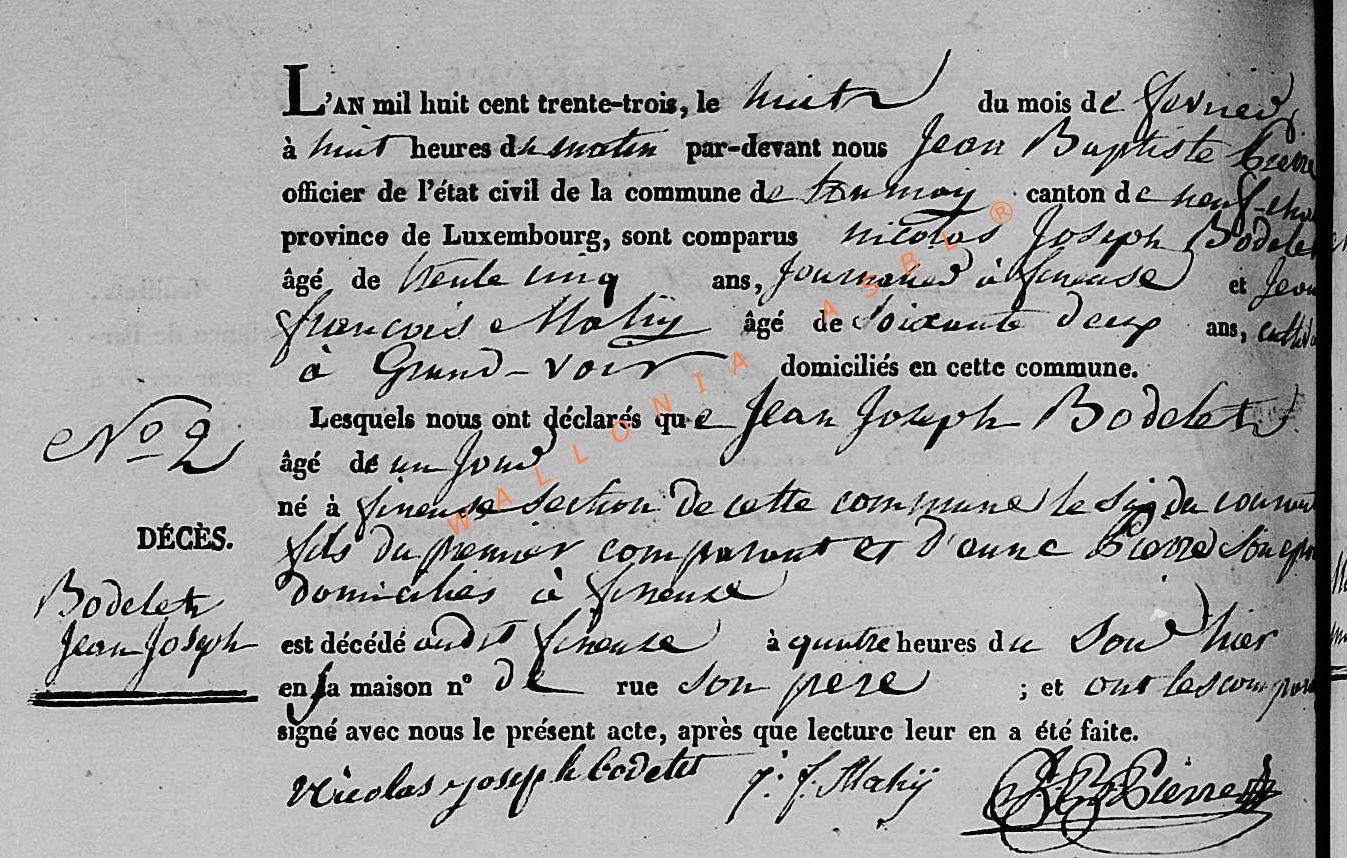 L'AN mil huit cent trente-trois, le huit du mois de fevrier
à huit heures du matin par-devant nous Jean Baptiste Pierre
officier de l'état civil de la commune de tournay canton de neufcha
province de Luxembourg, sont comparus nicolas Joseph Bodelet
âgé de trente cinq ans, Journalier à fineuse et Jean
françois Mahy âgé de Soixante deux ans, cultiva
à Grand-voir domiciliés en cette commune.
Lesquels nous ont déclarés que Jean Joseph Bodelet
N° 2
âgé de un Jour
né à fineuse section de cette commune le Six du courant
DÉCÈS.
fils du premier comparant et d'anne Pierre Son
domiciliés à fineuse
Bodelet
Jean Joseph
est décédé audit fineuse à quatre heures du Soir hier
en sa maison n° de rue son pere ; et ont les compara
signé avec nous le présent acte, après que lecture leur en a été faite.
Nicolas Joseph bodelet J. f. Mahy J B Pierre
WALLONIA ASBL ®